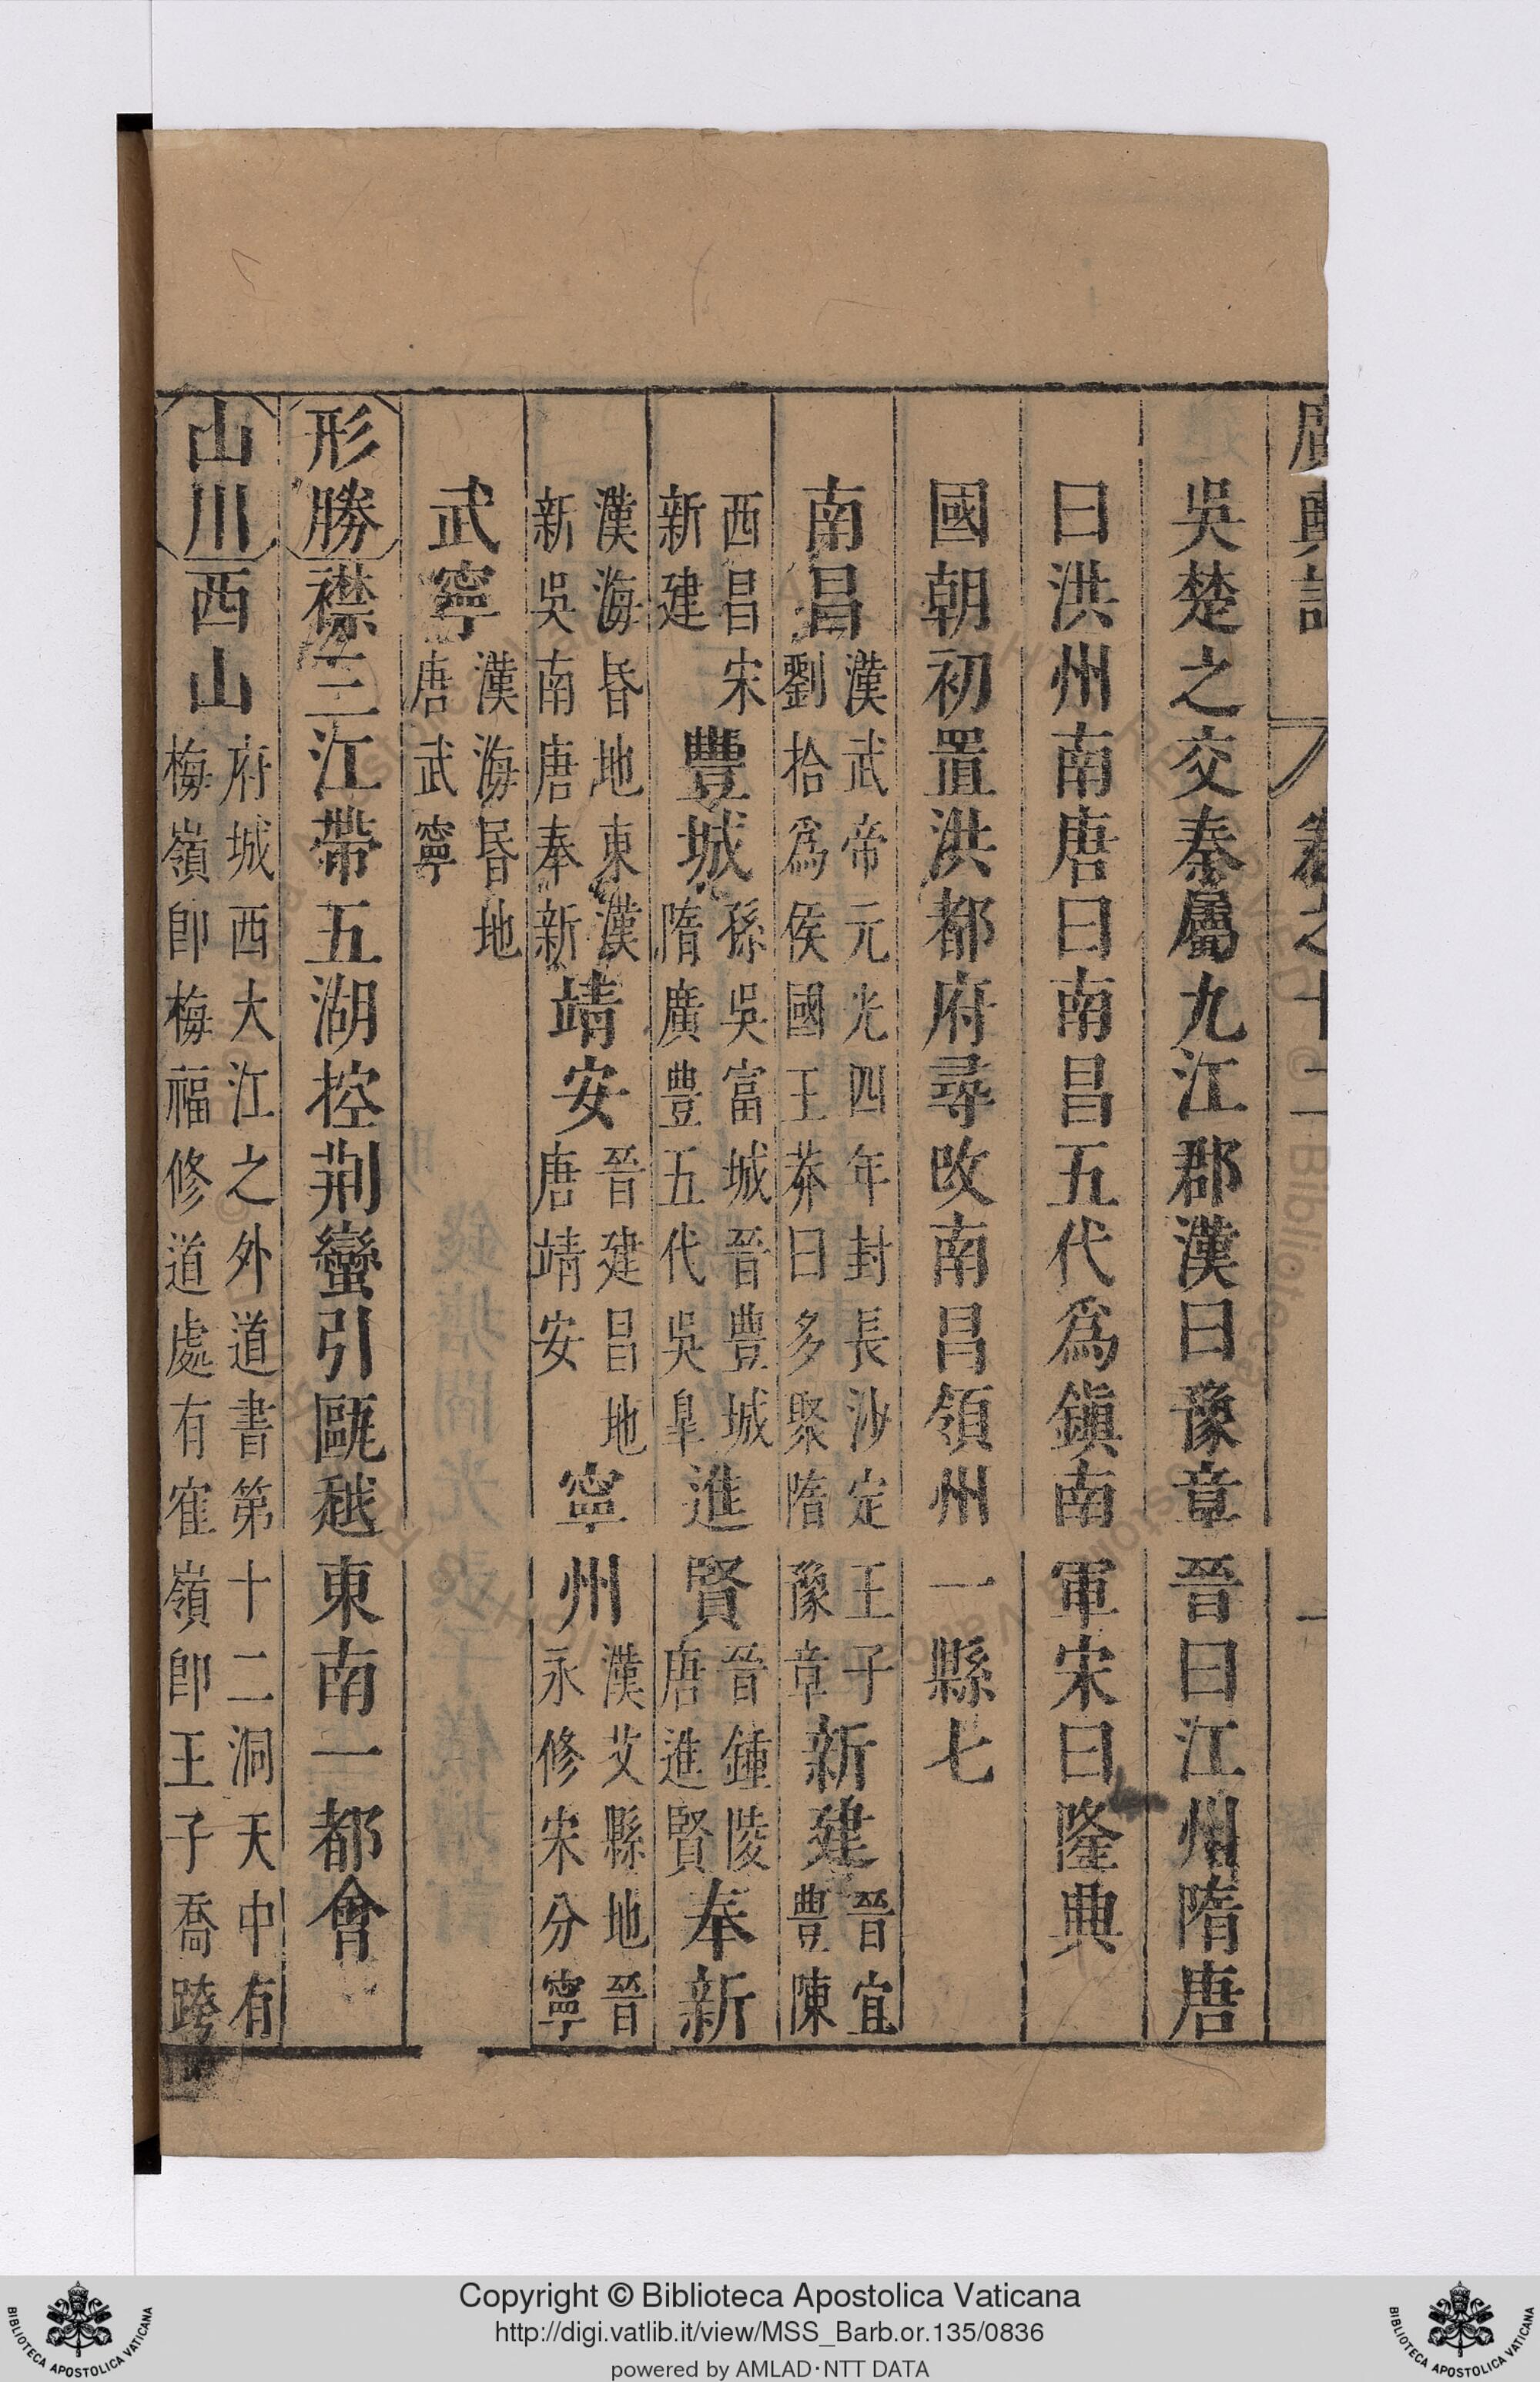 廣輿記 卷之十二 一
吳楚之交秦屬九江郡漢曰豫章晉曰江州隋唐
曰洪州南唐曰南昌五代爲鎭南軍宋曰隆興
國朝初置洪都府尋改南昌領州一縣七
南昌漢武帝元光四年封長沙定王子劉拾爲侯國王莽曰多聚隋豫章新建晉宜豐陳
西昌宋新建豐城孫吳富城晉豐城隋廣豐五代吳皐進賢晉鍾陵唐進賢奉新
漢海昏地東漢新吳南唐奉新靖安晉建昌地唐靖安寧州漢艾縣地晉永修宋分寧
武寧漢海昬地唐武寧
形勝襟三江帶五湖控荆蠻引甌越東南一都會
山川西山府城西大江之外道書第十二洞天中有梅嶺卽梅福修道處有隺嶺卽王子喬跨
Copyright © Biblioteca Apostolica Vaticana
http://digi.vatlib.it/view/MSS_Barb.or.135/0836
powered by AMLAD·NTT DATA
BIBLIOTECA APOSTOLICA VATICANA
BIBLIOTECA APOSTOLICA VATICANA